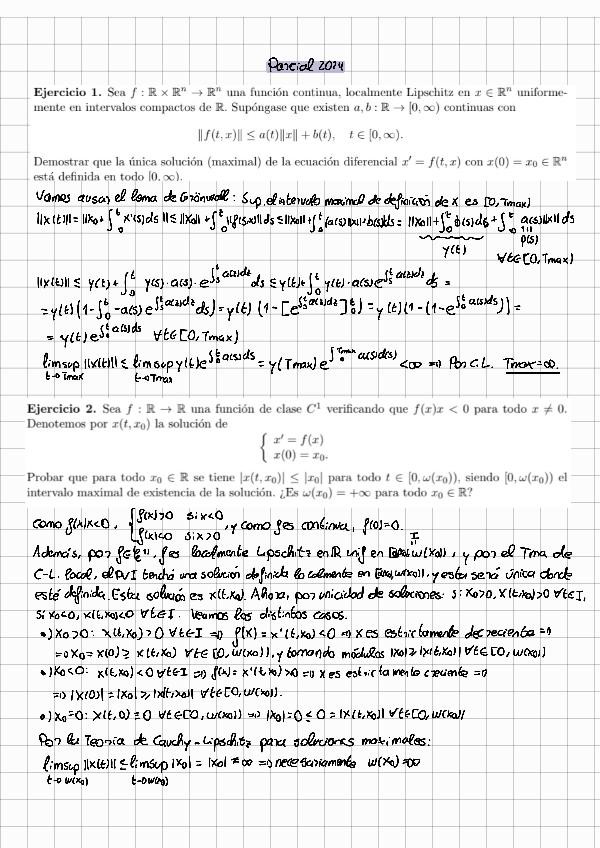 Parcial 2024
Ejercicio 1. Sea f : ℝ × ℝⁿ → ℝⁿ una función continua, localmente Lipschitz en x ∈ ℝⁿ uniforme-
mente en intervalos compactos de ℝ. Supóngase que existen a, b : ℝ → [0, ∞) continuas con
‖f(t, x)‖ ≤ a(t)‖x‖ + b(t), t ∈ [0, ∞).
Demostrar que la única solución (maximal) de la ecuación diferencial x′ = f(t, x) con x(0) = x₀ ∈ ℝⁿ
está definida en todo [0, ∞).
Vamos a usar el lema de Grönwall: Sup. el intervalo maximal de definición de x es [0, Tmax)
||x(t)|| = ||x₀ + ∫₀ᵗ x'(s)ds|| ≤ ||x₀|| + ∫₀ᵗ ||f(s,x)||ds ≤ ||x₀|| + ∫₀ᵗ (a(s)||x||+b(s))ds = ||x₀|| + ∫₀ᵗ b(s)ds + ∫₀ᵗ a(s)||x||ds
y(t) β(s)
∀t∈[0, Tmax)
||x(t)|| ≤ y(t) + ∫₀ᵗ y(s)·a(s)·e^{∫ₛᵗ a(z)dz} ds ≤ y(t) + ∫₀ᵗ y(t)·a(s)e^{∫ₛᵗ a(z)dz} ds =
= y(t)(1 - ∫₀ᵗ -a(s)e^{∫ₛᵗ a(z)dz} ds) = y(t)(1 - [e^{∫ₛᵗ a(z)dz}]₀ᵗ) = y(t)(1 - (1 - e^{∫₀ᵗ a(s)ds})) =
= y(t)e^{∫₀ᵗ a(s)ds} ∀t∈[0, Tmax)
limsup ||x(t)|| ≤ limsup y(t)e^{∫₀ᵗ a(s)ds} = y(Tmax)e^{∫₀^{Tmax} a(s)ds} < ∞ ⇒ Por C.L. Tmax = ∞.
t→Tmax t→Tmax
Ejercicio 2. Sea f : ℝ → ℝ una función de clase C¹ verificando que f(x)x < 0 para todo x ≠ 0.
Denotemos por x(t, x₀) la solución de
{ x′ = f(x)
x(0) = x₀.
Probar que para todo x₀ ∈ ℝ se tiene |x(t, x₀)| ≤ |x₀| para todo t ∈ [0, ω(x₀)), siendo [0, ω(x₀)) el
intervalo maximal de existencia de la solución. ¿Es ω(x₀) = +∞ para todo x₀ ∈ ℝ?
Como f(x)x<0, { f(x)>0 si x<0
f(x)<0 si x>0 , y como f es continua, f(0)=0.
Además, por f∈C¹, f es localmente Lipschitz en ℝ unif en [0, w(x₀)), y por el Tma de
C-L. local, el PVI tendrá una solución definida localmente en [0, w(x₀)), y esta será única donde
esté definida. Esta solución es x(t,x₀). Ahora, por unicidad de soluciones: si x₀>0, x(t,x₀)>0 ∀t∈I,
si x₀<0, x(t,x₀)<0 ∀t∈I. Veamos los distintos casos.
•) x₀>0: x(t,x₀)>0 ∀t∈I ⇒ f(x) = x'(t,x₀)<0 ⇒ x es estrictamente decreciente ⇒
⇒ x₀ = x(0) ≥ x(t,x₀) ∀t∈[0, w(x₀)), y tomando módulos |x₀| ≥ |x(t,x₀)| ∀t∈[0, w(x₀))
•) x₀<0: x(t,x₀)<0 ∀t∈I ⇒ f(x) = x'(t,x₀)>0 ⇒ x es estrictamente creciente ⇒
⇒ |x(0)| = |x₀| ≥ |x(t,x₀)| ∀t∈[0, w(x₀)).
•) x₀=0: x(t,0) ≡ 0 ∀t∈[0, w(x₀)) ⇒ |x₀| = 0 ≤ 0 = |x(t,x₀)| ∀t∈[0, w(x₀))
Por la Teoría de Cauchy-Lipschitz para soluciones maximales:
limsup ||x(t)|| ≤ limsup |x₀| = |x₀| ≠ ∞ ⇒ necesariamente w(x₀) = ∞
t→w(x₀) t→w(x₀)